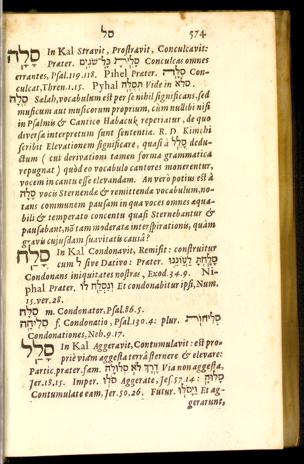 סל 574
סָלָה In Kal Stravit, Prostravit, Conculcavit:
Præter. סָלִיתָ כָּל־שׁוֹגִים Conculcas omnes
errantes, Psal. 119. 118. Pihel Præter. סִלָּה Con-
culcat, Thren. 1. 15. Pyhal תְסֻלֶּה Vide in סלא.
סֶלָה Salah, vocabulum est per se nihil significans, sed
musicum aut musicorum proprium, cùm nullibi nisi
in Psalmis & Cantico Habacuk reperiatur, de quo
diversæ interpretum sunt sententiæ. R. D. Kimchi
scribit Elevationem significare, quasi à סָלַל dedu-
ctum (cui derivationi tamen forma grammatica
repugnat) quòd eo vocabulo cantores monerentur,
vocem in cantu esse elevandam. An verò potius est à
סָלָה vocis Sternendæ & remittendæ vocabulum, no-
tans communem pausam in qua voces omnes æqua-
bili & temperato concentu quasi Sternebantur &
pausabant, nō tam moderata interspirationis, quàm
gravis cujusdam suavitatis causâ?
סָלַח In Kal Condonavit, Remisit: construitur
cum לְ sive Dativo: Præter. סָלַחְתָּ לַעֲוֹנֵנוּ
Condonans iniquitates nostras, Exod. 34. 9. Ni-
phal Præter. וְנִסְלַח לוֹ Et condonabitur ipsi, Num.
15. ver. 28.
סַלָּח m. Condonator, Psal. 86. 5.
סְלִיחָה f. Condonatio, Psal. 130. 4: plur. סְלִיחוֹת
Condonationes, Neh. 9. 17.
סָלַל In Kal Aggeravit, Contumulavit: est pro-
priè viam aggesta terrâ sternere & elevare:
Partic. præter. fæm. דֶּרֶךְ לֹא סְלוּלָה Via non aggesta,
Jer. 18. 15. Imper. סֹלּוּ Aggerate, Jes. 57. 14: סָלּוּהָ
Contumulate eam, Jer. 50. 26. Futur. וַיָּסֹלּוּ Et ag-
gerarunt,